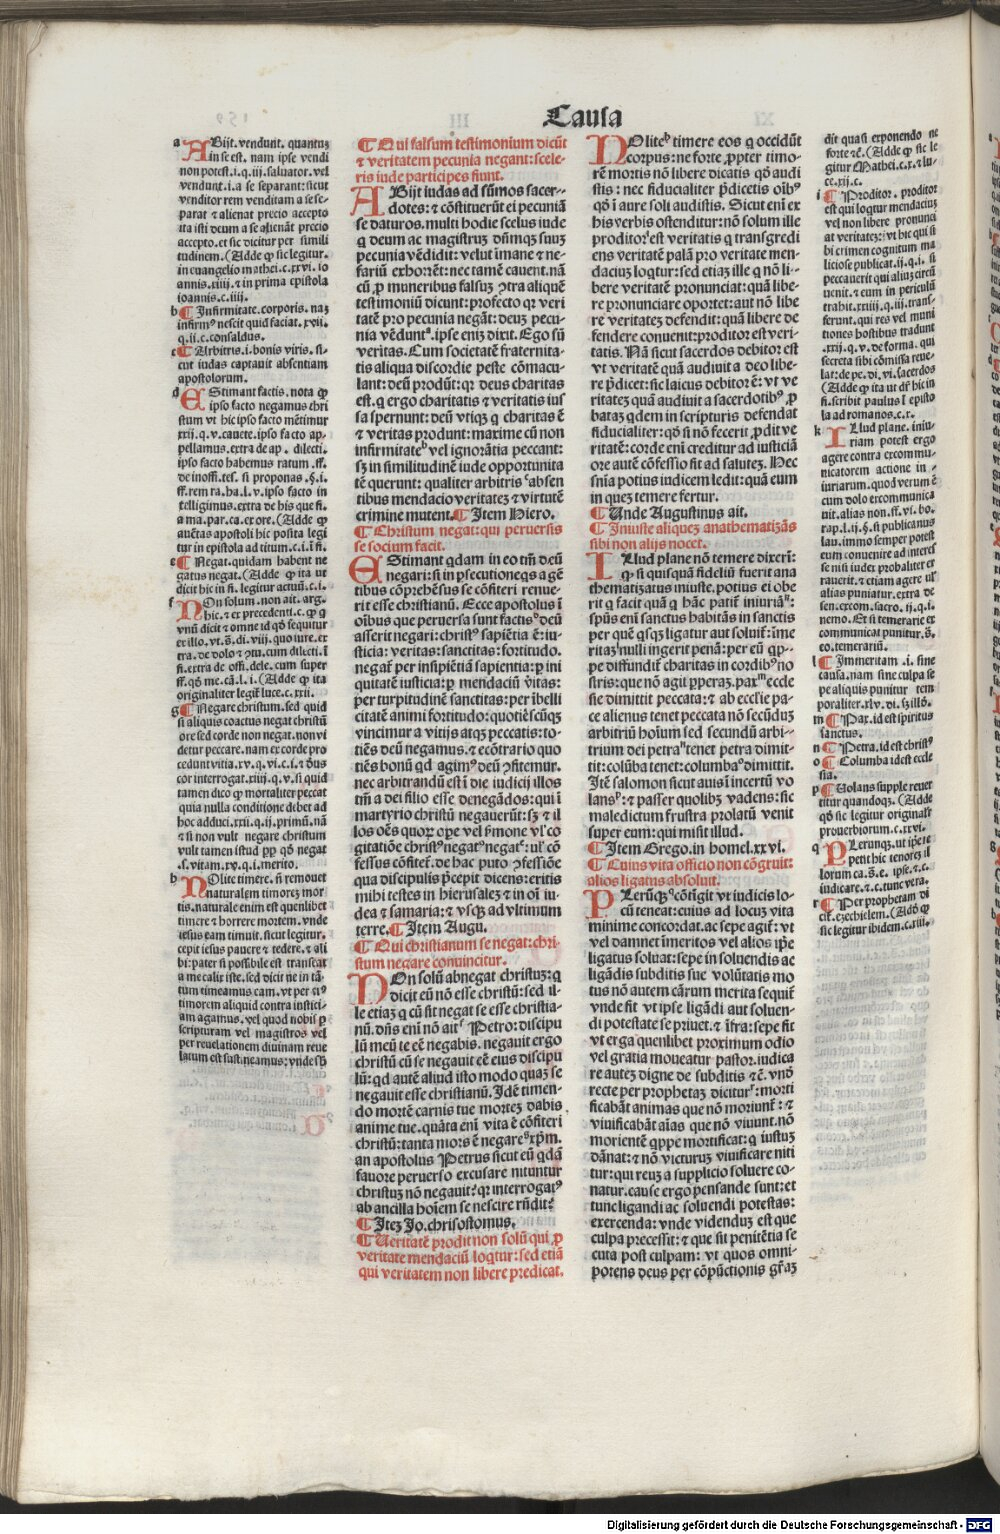 Causa
a ABijt. vendunt. quantuz
in se est. nam ipse vendi
non potest. i. q. iii. saluator. vel
vendunt. i. a se separant: sicut
venditor rem venditam a se se-
parat ⁊ alienat precio accepto
ita isti deum a se alienāt precio
accepto. et sic dicitur per simili
tudinem. (Adde ꝙ sic legitur.
in euangelio mathei. c. xxvi. io
annis. xiiii. ⁊ in prima epistola
ioannis. c. iiii.
b ¶ Infirmitate. corporis. naz
infirmꝰ nescit quid faciat. xvii.
q. ii. c. consaldus.
c ¶ Arbitris. i. bonis viris. si-
cut iudas captauit absentiam
apostolorum.
d EStimant factis. nota ꝙ
ipso facto negamus chri
stum vt hic ipso facto mētimur
xxii. q. v. cauete. ipso facto ap-
pellamus. extra de ap. dilecti.
ipso facto habemus ratum. ff.
de inoffi. tes. si proponas. §. i.
ff. rem ra. ba. l. v. ipso facto in
telligimus. extra de his que fi.
a ma. par. ca. ex ore. (Adde ꝙ
auctēas apostoli hic posita legi
tur in epistola ad titum. c. i. ī fi.
e ¶ Negat. quidam habent ne
gatus negat. (Adde ꝙ ita ut
dicit hic in fi. legitur actuū. c. i.
f NOn solum. non ait. arg.
hic. ⁊ ex precedenti. c. ꝙ q
vnū dicit ⁊ omne id qd sequitur
ex illo. vt. s. di. viij. quo iure. ex
tra. de dolo ⁊ ꝯtu. cum dilecti. ī
fi. extra de offi. dele. cum super
ff. qd me. cā. l. i. (Adde ꝙ ita
originaliter legit luce. c. xxii.
g ¶ Negare christum. sed quid
si aliquis coactus negat christū
ore sed corde non negat. non vi
detur peccare. nam ex corde pro
cedunt vitia. xv. q. vi. c. i. ⁊ dꝰus
cor interrogat. xiiij. q. v. si quid
tamen dico ꝙ mortaliter peccat
quia nulla conditione debet ad
hoc adduci. xxii. q. ij. primū. nā
⁊ si non vult negare christum
vult tamen istud ꝓp qd negat
. s. vitam. xv. q. i. merito.
h NOlite timere. ñ remouet
naturalem timorez mor
tis. naturale enim est quenlibet
timere ⁊ horrere mortem. vnde
iesus eam timuit. sicut legitur.
cepit iesus pauere ⁊ tedere. ⁊ ali
bi: pater si possibile est transeat
a me calix iste. sed dicit ne in tā-
tum timeamus eam. vt per eiꝰ
timorem aliquid contra iustici-
am agamus. vel quod nobis ꝑ
scripturam vel magistros vel
per reuelationem diuinam reue
latum est sustineamus: vnde sb
¶ Qui falsum testimonium dicūt
⁊ veritatem pecunia negant: scele-
ris iude participes fiunt.
ABijt iudas ad sūmos sacer-
dotes: ⁊ cōstituerūt ei pecuniā
se daturos. multi hodie scelus iude
q deum ac magistruz dñmqz suuz
pecunia vēdidit: velut īmane ⁊ ne-
fariū exhorrēt: nec tamē cauent. nā
cū ꝑ muneribus falsuz ꝯtra aliquē
testimoniū dicunt: profecto qr veri
tatē pro pecunia negāt: deuz pecu-
nia vēdunt.ᵃ ipse eniz dixit. Ego sū
veritas. Cum societatē fraternita-
tis aliqua discordie peste cōmacu-
lant: deū produt: qr deus charitas
est. q ergo charitatis ⁊ veritatis ius
sa spernunt: deū vtiqz q charitas ē
⁊ veritas produnt: maxime cū non
infirmitateᵇ vel ignorātia peccant:
sz in similitudinē iude opportunita
tē querunt: qualiter arbitrisᶜ absen
tibus mendacio veritatez ⁊ virtutē
crimine mutent. ¶ Item Hiero.
¶ Christum negat: qui peruersis
se socium facit.
EStimant qdam in eo tm̄ deū
negari: si in psecutione qs a gē
tibus cōprehēsus se cōfiteri renue-
rit esse christianū. Ecce apostolus ī
oībus que peruersa sunt factisᵈ deū
asserit negari: christꝰ sapiētia ē: iu-
sticia: veritas: sanctitas: fortitudo.
negat ꝑ insipiētiā sapientia: ꝑ ini
quitatē iusticia: ꝑ mendaciū vītas:
per turpitudinē sanctitas: per ibelli
citatē animi fortitudo: quotiēscūqz
vincimur a vitijs atqz peccatis: to-
tiēs deū negamus. ⁊ ecōtrario quo
tiēs bonū qd agimꝰ deū ꝯfitemur.
nec arbitrandū est ī die iudicij illos
tm̄ a dei filio esse denegādos: qui ī
martyrio christū negauerūt: sz ⁊ il
los oēs quorz ope vel ẛmone vl' co
gitatiōe christꝰ negatꝰ negatᵉ: ul' cō
fessus cōfitet. de hac puto ꝯfessiōe
qua discipulis p̄cepit dicens: eritis
mihi testes in hierusalez ⁊ in oi iu-
dea ⁊ samaria: ⁊ vsqz ad vltimum
terre. ¶ Item Augu.
¶ Qui christianum se negat: chri-
stum negare conuincitur.
NOn solū abnegat christuz: q
dicit eū nō esse christū: sed il-
le etiaz q cū sit negat se esse christia-
nū. dñs eni nō aitᶠ Petro: discipu
lū meū te eē negabis. negauit ergo
christū cū se negauit eē eius discipu
lū: qd autē aliud isto modo quaz se
negauit esse christianū. Idē timen-
do mortē carnis tue mortez dabis
anime tue. quāta eni vita ē cōfiteri
christū: tanta mors ē negareᵍ xp̄m.
an apostolus Petrus sicut eū qdā
fauore peruerso excusare nituntur
christuz nō negauit? qr interrogatꝰ
ab ancilla hoiem se nescire rn̄dit?
¶ Itez Jo. chrisostomus.
¶ Veritatē prodit non solū qui ꝑ
veritate mendaciū loqtur: sed etiā
qui veritatem non libere predicat.
NOliteʰ timere eos q occidūt
corpus: ne forte ꝓpter timo-
rē mortis nō libere dicatis qd audi
stis: nec fiducialiter p̄dicetis oībꝰ
qd ī aure soli audistis. Sicut eni ex
his verbis ostenditur: nō solum ille
proditorⁱ est veritatis q transgredi
ens veritatē palā pro veritate men-
daciuz loqtur: sed etiaz ille q nō li-
bere veritatē pronunciat: quā libe-
re pronunciare oportet: aut nō libe
re veritatez defendit: quā libere de
fendere conuenit: proditor est veri-
tatis. Nā sicut sacerdos debitor est
vt veritatē quā audiuit a deo libe-
re p̄dicet: sic laicus debitor ē: vt ve
ritatez quā audiuit a sacerdotibꝰ ꝓ
batam qdem in scripturis defendat
fiducialiter: qd si nō fecerit ꝓdit ve
ritatē: corde eni creditur ad iusticiā
ore autē cōfessio fit ad salutez. Nec
snīa potius iudicem ledit: quā eum
in quez temere fertur.
¶ Unde Augustinus ait.
¶ Iniuste aliquez anathematizās
sibi non alijs nocet.
ILlud plane nō temere dixerī:
ꝙ si quisquā fideliū fuerit ana
thematizatus iniuste. potius ei obe
rit q facit quā q hāc patiē iniuriāᵏ:
spūs eni sanctus habitās in sanctis
per quē qsqz ligatur aut soluit: īme
ritazˡ nulli ingerit penā: per eū qp-
pe diffundit charitas in cordibꝰ no
stris: que nō agit ꝑperaz. paxᵐ eccle
sie dimittit peccata: ⁊ ab ecclīe pa-
ce alienus tenet peccata nō secūduz
arbitriū hoium sed secundū arbi-
trium dei petraⁿ tenet petra dimit-
tit: colūba tenet: columbaᵒ dimittit.
Itē salomon sicut auis ī incertū vo
lansᵖ: ⁊ passer quolibz vadens: sic
maledictum frustra prolatū venit
super eum: qui misit illud.
¶ Item Grego. in homel. xxvi.
¶ Cuius vita officio non cōgruit:
alios ligatus absoluit.
PLerūqzᑫ cōtigit vt iudicis lo-
cū teneat: cuius ad locuz vita
minime concordat. ac sepe agit: vt
vel damnet īmeritos vel alios ipse
ligatus soluat: sepe in soluendis ac
ligādis subditis sue volūtatis mo
tus nō autem cārum merita sequit
vnde fit vt ipse ligādi aut soluen-
di potestate se priuet. ⁊ ifra: sepe fit
vt erga quenlibet proximum odio
vel gratia moueatur pastor. iudica
re autez digne de subditis ⁊ē. vnō
recte per prophetaz diciturʳ: morti
ficabāt animas que nō moriunt: ⁊
viuificabāt aias que nō viuunt. nō
morientē qppe mortificat: q iustuz
dānat: ⁊ nō victuruz viuificare niti
tur: qui reuz a supplicio soluere co-
natur. cause ergo pensande sunt: et
tunc ligandi ac soluendi potestas:
exercenda: vnde videnduz est que
culpa precessit: ⁊ que sit penitētia se
cuta post culpam: vt quos omni-
potens deus per cōpūctionis grāz
dit quasi exponendo ne
forte ⁊ē. (Adde ꝙ sic le
gitur Mathei. c. x. ⁊ lu-
ce. xij. c.
i ¶ Proditor. proditor
est qui loqtur mendaciuz
vel non libere pronunci
at veritatez: vt hic qui si
bi crimen cognitum ma
liciose publicat. ij. q. i. si
peccauerit qui alius circū
uenit. ⁊ eum in periculū
trahit. xxiiij. q. iij. trans-
ferunt. qui res vel muni
tiones hostibus tradunt
. xxij. q. v. de forma. qui
secreta sibi cōmissa reue-
lat: de pe. di. vi. sacerdos
(Adde ꝙ ita ut dr̄ hic in
fi. scribit paulus ī episto
la ad romanos. c. x.
k ILlud plane. iniu-
riam potest ergo
agere contra excommu-
nicatorem actione in-
iuriarum. quod verum ē
cum dolo excommunica
uit. alias non. ff. vi. bo.
rap. l. ij. §. si publicanus
lau. immo semper potest
eum conuenire ad interes
se nisi iudex probaliter er
rauerit. ⁊ etiam agere ul'
alias puniatur. extra de
sen. excom. sacro. ij. q. i.
nemo. Et si temerarie ex
communicat punitur. s.
eo. temerariū.
l ¶ Immeritam. i. sine
causa. nam sine culpa se
pe aliquis punitur tem
poraliter. xlv. di. §. illd.
m ¶ Pax. id est spiritus
sanctus.
n ¶ Petra. id est christꝰ
o ¶ Columba id est eccle
sia.
p ¶ Uolans supple reuer
titur quandoqz. (Adde
qd sic legitur originalr
prouerbiorum. c. xxvi.
q PLerunqz. ut ipe te
petit hic tenorez il
lorum ca. s. c. ipse. ⁊. c.
iudicare. ⁊. c. tunc vera.
r ¶ Per prophetam di
cit. ezechielem. (Addē ꝙ
sic legitur ibidem. c. xiii.
Digitalisierung gefördert durch die Deutsche Forschungsgemeinschaft - DFG